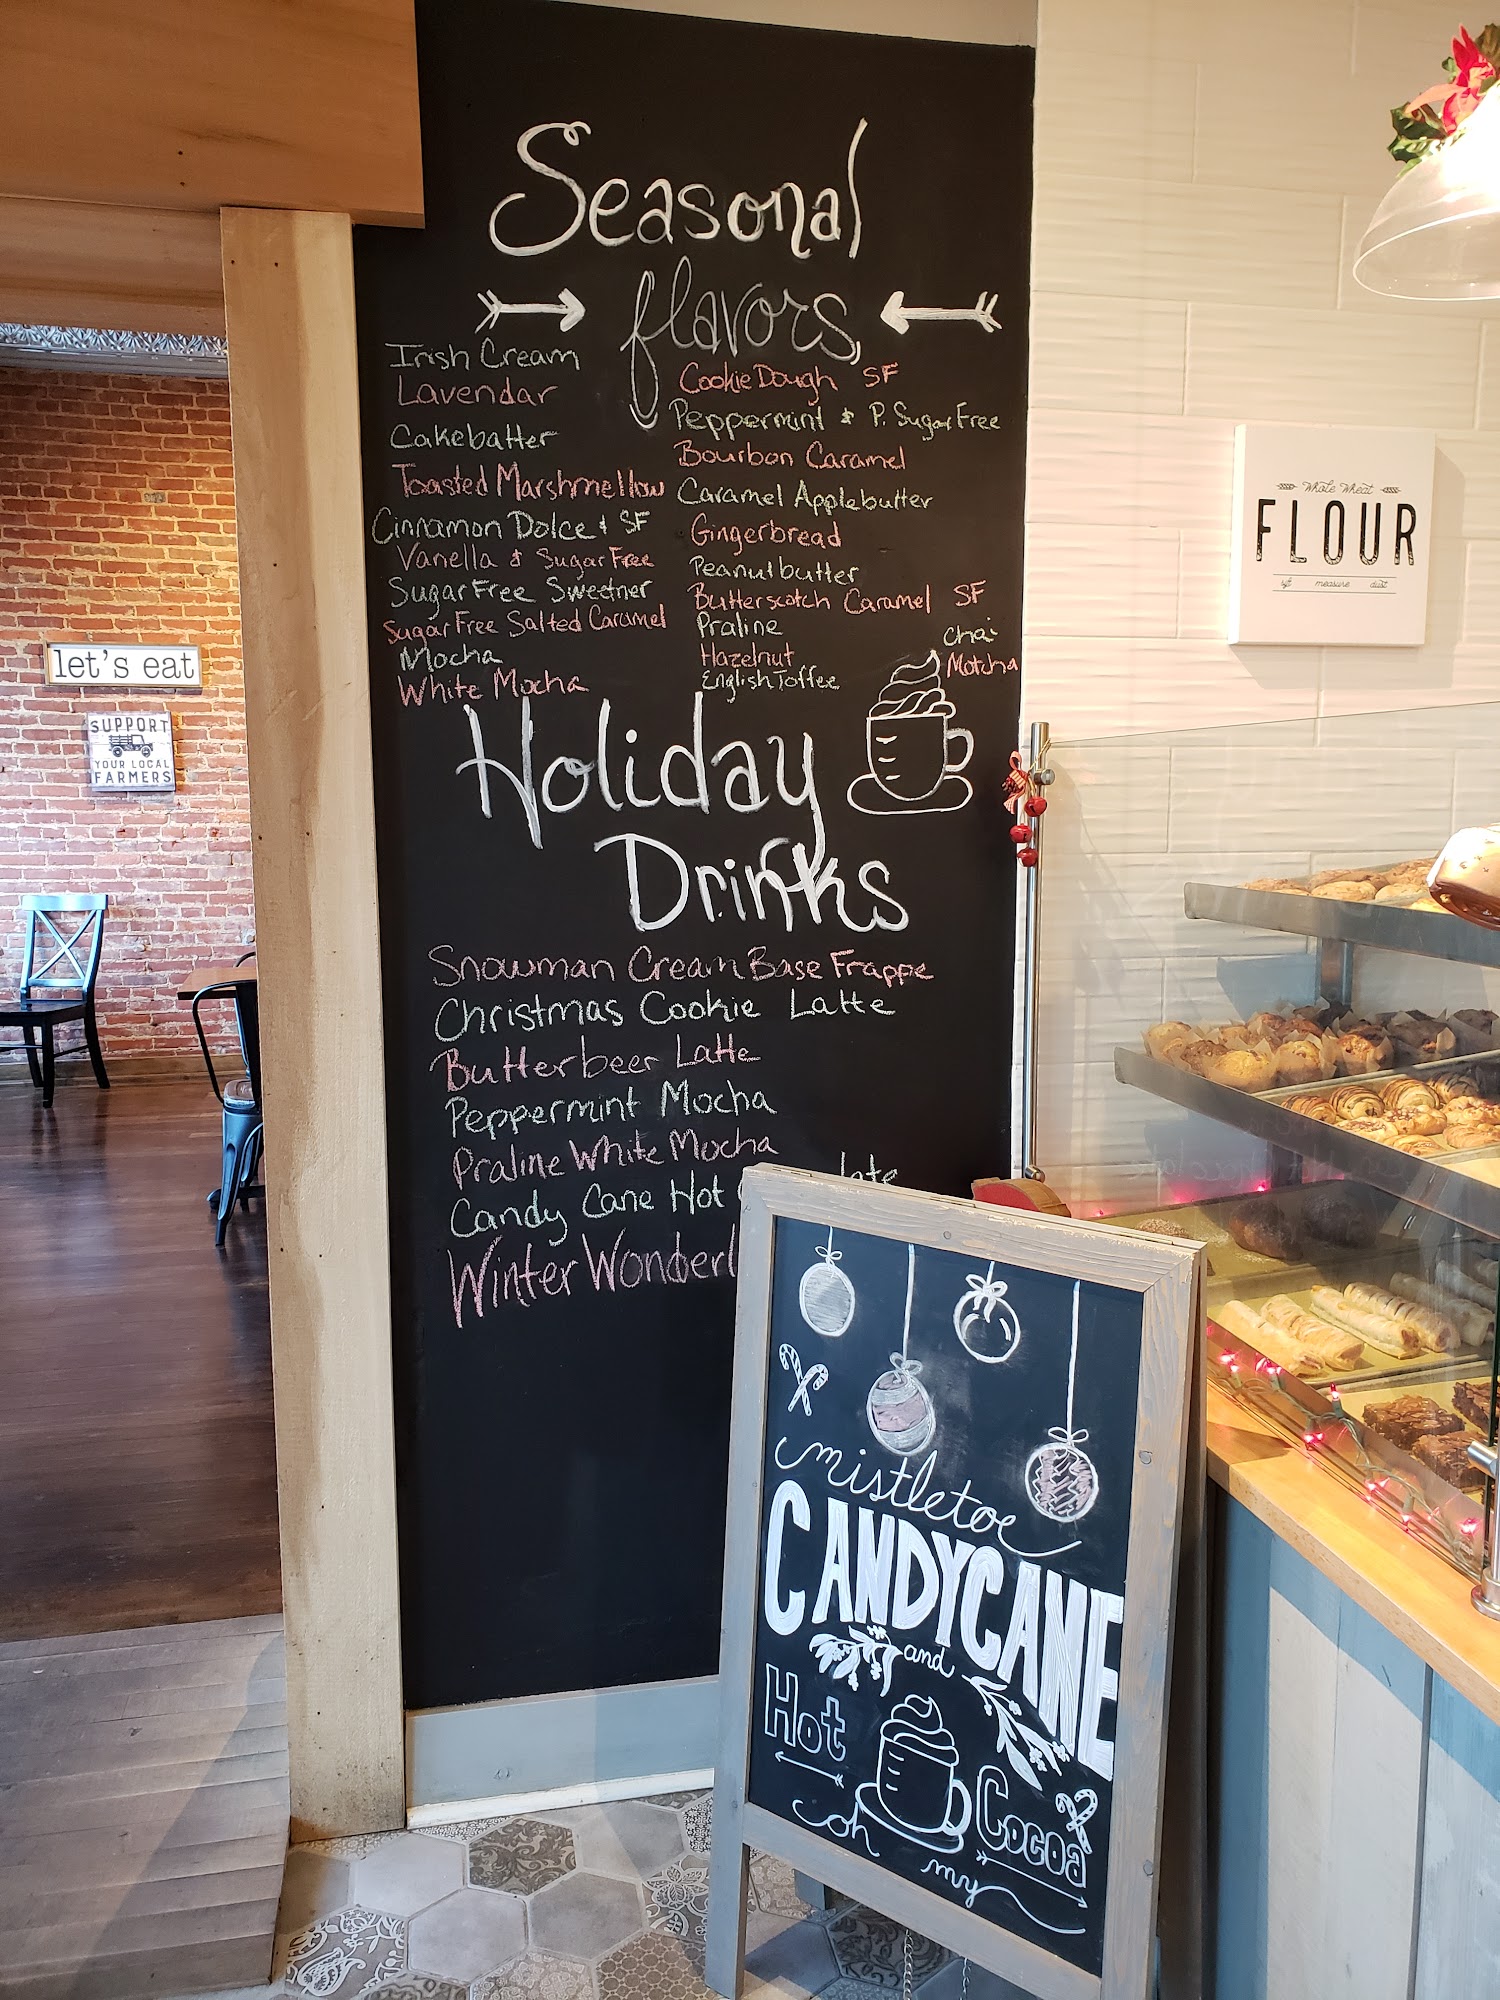 Seasonal
flavors
Irish Cream
Lavendar
Cakebatter
Toasted Marshmellow
Cinnamon Dolce & SF
Vanella & Sugar Free
Sugar Free Sweetner
Sugar Free Salted Caramel
Mocha
White Mocha
Cookie Dough SF
Peppermint & P. Sugar Free
Bourbon Caramel
Caramel Applebutter
Gingerbread
Peanutbutter
Butterscotch Caramel SF
Praline
Hazelnut
English Toffee
Chai
Motcha
Holiday
Drinks
Snowman Cream Base Frappe
Christmas Cookie Latte
Butterbeer Latte
Peppermint Mocha
Praline White Mocha
Candy Cane Hot
Winter Wonderl
mistletoe
CANDYCANE
and
Hot
Cocoa
oh
my
let's eat
SUPPORT
YOUR LOCAL
FARMERS
Whole Wheat
FLOUR
sift measure dust